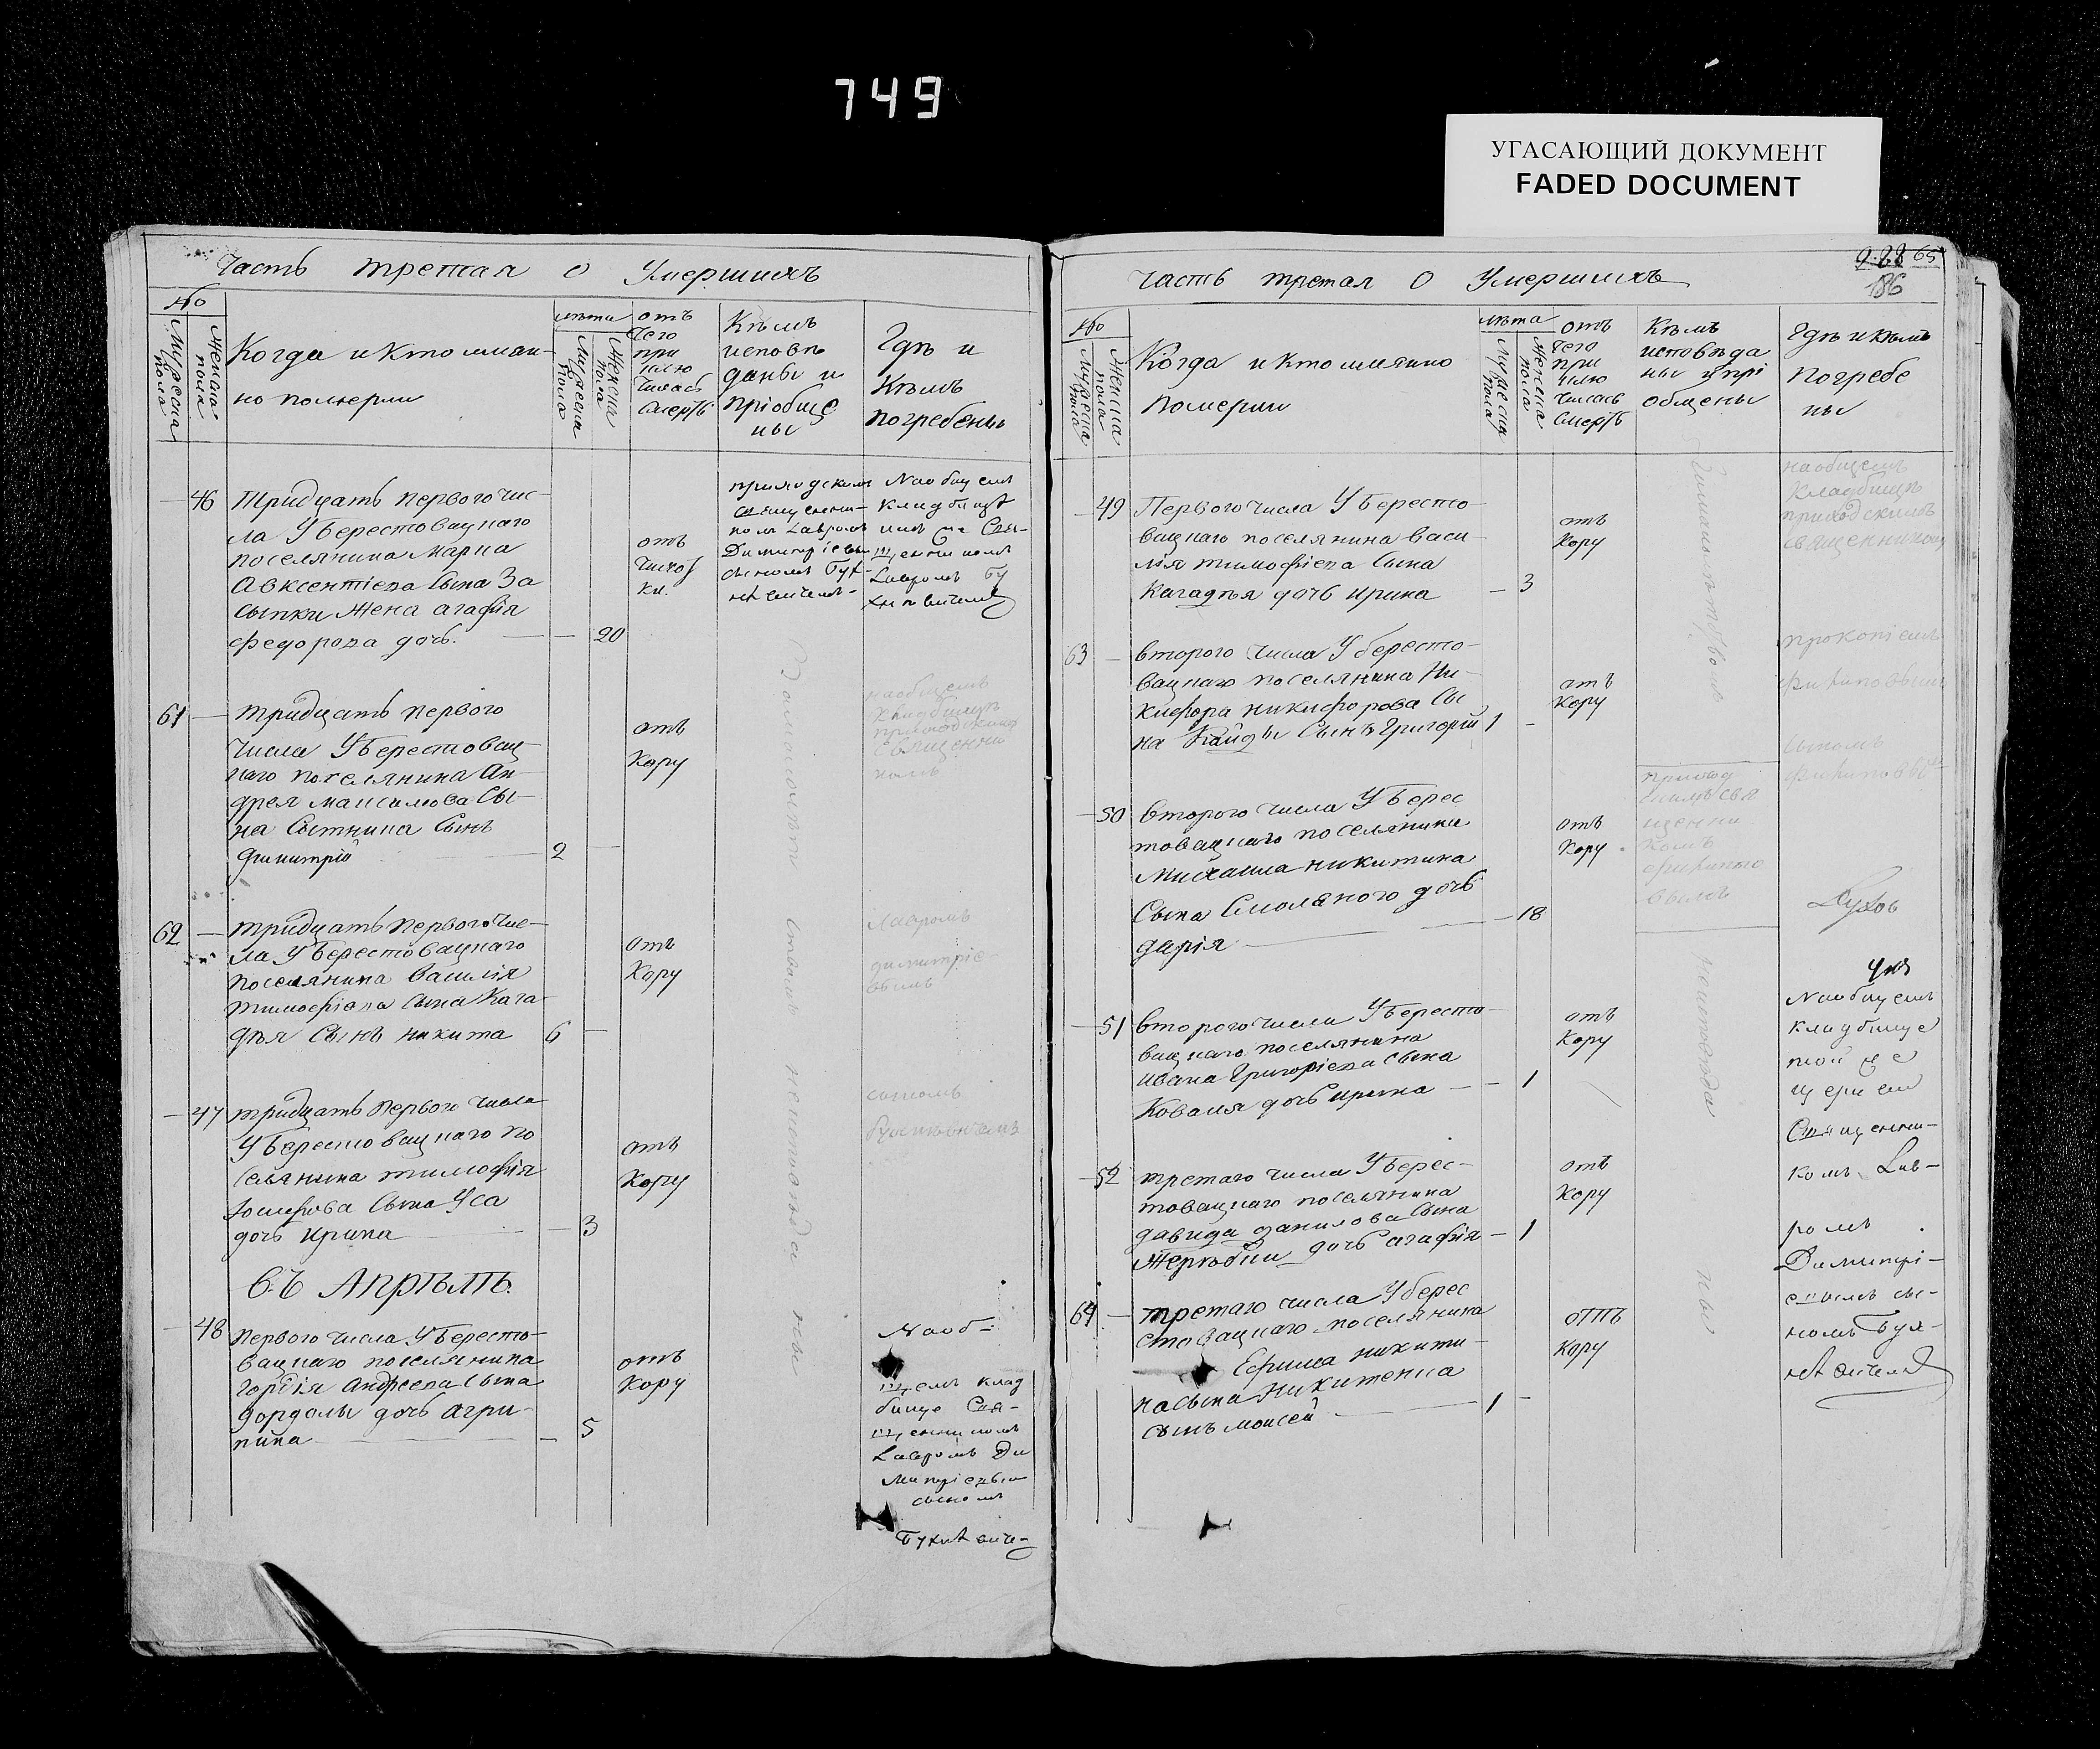 749
УГАСАЮЩИЙ ДОКУМЕНТ
FADED DOCUMENT
Часть третая о Умершихъ
№
Мужеска пола
Женска пола
Когда и кто имян-
но померли
лѣта
Мужеска пола
Женска пола
отъ
чего
при
клю
чилась
смерть
Кѣмъ
исповѣ
даны и
пріобще
ны
Гдѣ и
кѣмъ
погребены
46
Тридцать первого чис-
ла У Берестовацнаго
поселянина Марка
Авксентіева сына За
сыпки жена агафія
федорова дочь.
20
отъ
приходскимъ
священни-
комъ Лавромъ
Димитріевы
сыномъ
На общемъ
кладбище
Свя-
щенникомъ
Лавромъ
61
тридцать первого
числа У Берестовац-
наго поселянина Ан-
дрея Максимова Сы-
на Сытника Сынъ
димитрій
2
отъ
Кору
на общемъ
кладбищѣ
приходскимъ
священни
комъ
62
тридцать первого чис-
ла У Берестовацнаго
поселянина Василія
тимофіева сына Кага
дѣя Сынъ никита
6
отъ
Кору
Лавромъ
димитріе-
вымъ
47
тридцать первого числа
У Берестовацнаго по
селянина тимофія
Іосифова Сына Уса
дочь Ирина
3
отъ
Кору
сыномъ
въ Апрѣлѣ.
48
Первого числа У Бересто-
вацнаго поселянина
Гордія Андреева Сына
дочь Агри-
пина
5
отъ
Кору
На об-
щемъ клад
бище Свя-
щенникомъ
Лавромъ Ди
митріевым
сыномъ
исповѣда ны
часть третая О Умершихъ
65
186
№
Мужеска пола
Женска пола
Когда и кто имянно
померли
лѣта
Мужеска пола
Женска пола
отъ
чего
при
клю
чилась
смерть
Кѣмъ
исповѣда
ны и прі
общены
Гдѣ и кѣмъ
погребе
ны
49
Первого числа У Бересто-
вацнаго поселянина Васи-
лія тимофіева Сына
Кагадѣя дочь Ирина
3
отъ
Кору
на общемъ
кладбищѣ
приходскимъ
священникомъ
63
второго числа У бересто-
вацнаго поселянина Ни-
кифора никифорова Сы
на Кайды Сынъ Григорій
1
отъ
Кору
прокопіемъ
50
второго числа У Берес
товацнаго поселянина
Михаила никитина
Сына Смоляного дочь
дарія
18
отъ
Кору
приход
скимъ свя
щенни
комъ
сыномъ
51
второго числа У Бересто-
вацнаго поселянина
Ивана Григоріева Сына
Коваля дочь Ирина
1
отъ
Кору
На общемъ
кладбище
той же
церкви
Священни-
комъ Лав-
ромъ
Димитрі-
евымъ сы-
номъ
52
третаго числа У Берес-
товацнаго поселянина
давида данилова Сына
Жеребни дочь агафія
1
отъ
Кору
64
третаго числа У берес
стовацнаго поселянина
Ефима никити-
на сына Никитенка
сынъ моисей
1
отъ
Кору
исповѣда ны